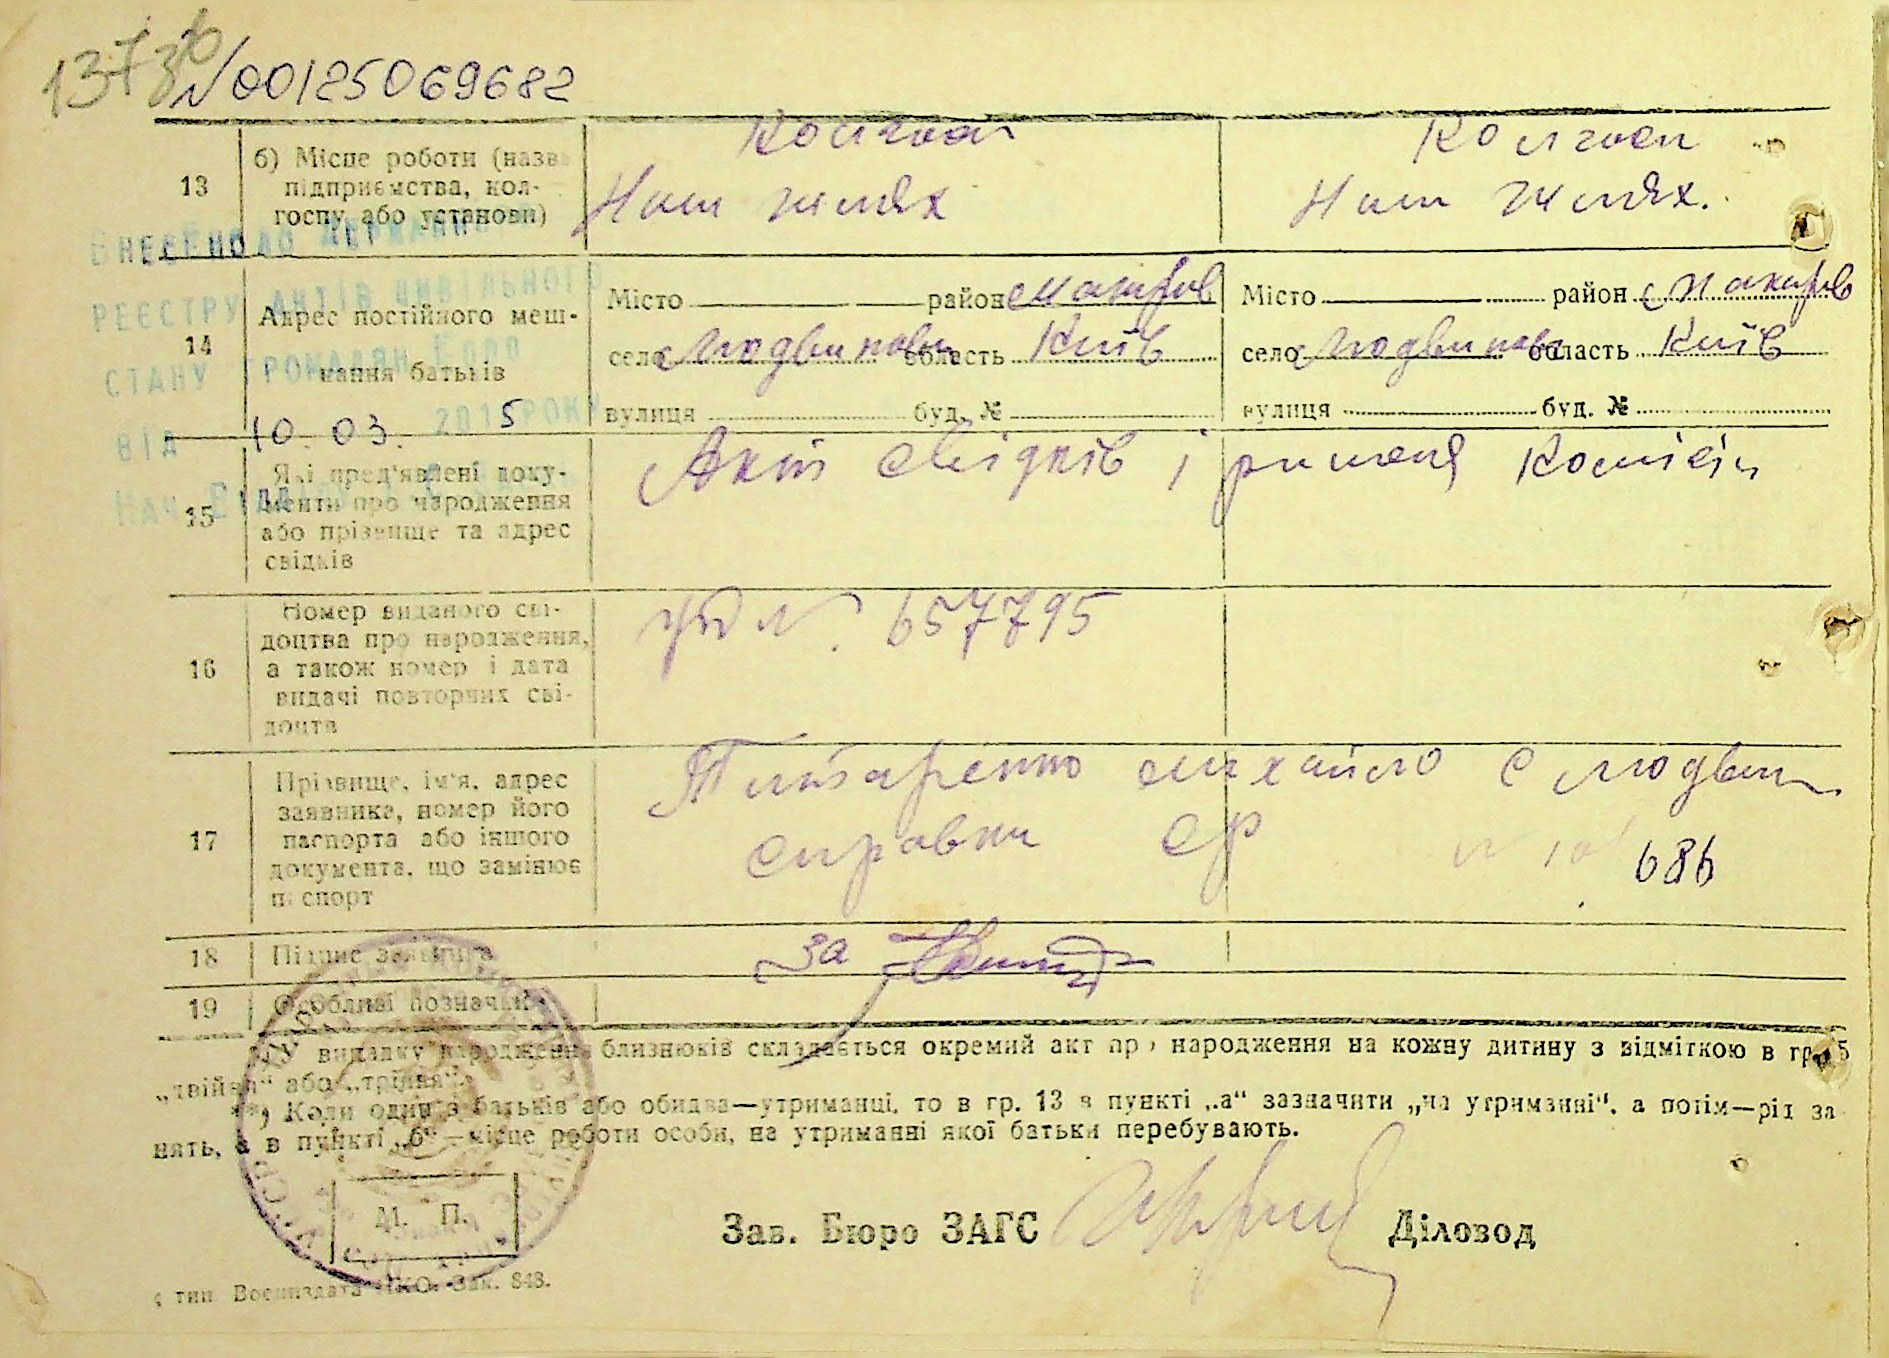 1373
№00125069682
13
б) Місце роботи (назва
підприємства, кол-
госпу або установи)
Колгосп
Наш шлях
Колгосп
Наш шлях.
Внесено до Державного
реєстру актів цивільного
стану громадян
від 10.03. 2015 року
Нач. відділу
14
Адрес постійного меш-
кання батьків
Місто район Макарів
село Людвинівка область Київ
вулиця буд. №
Місто район Макарів
село Людвинівка область Київ
вулиця буд. №
15
Які пред'явлені доку-
менти про народження
або прізвище та адрес
свідків
Акт свідків і рішення комісії
16
Номер виданого сві-
доцтва про народження,
а також номер і дата
видачі повторних сві-
доцтв
№ 657795
17
Прізвище, ім'я, адрес
заявника, номер його
паспорта або іншого
документа, що замінює
паспорт
Титаренко Михайло с Людвин
справки ср
686
18
Підпис заявника
за
19
Особливі позначки
*) У випадку народження близнюків складається окремий акт про народження на кожну дитину з відміткою в гр. 5
„двійня“ або „трійня“.
**) Коли один з батьків або обидва—утриманці, то в гр. 13 в пункті „а“ зазначити „на утриманні“, а потім—рід за
нять, а в пункті „б“—місце роботи особи, на утриманні якої батьки перебувають.
М. П.
Зав. Бюро ЗАГС
Діловод
тип. Воениздата НКО. Зак. 848.